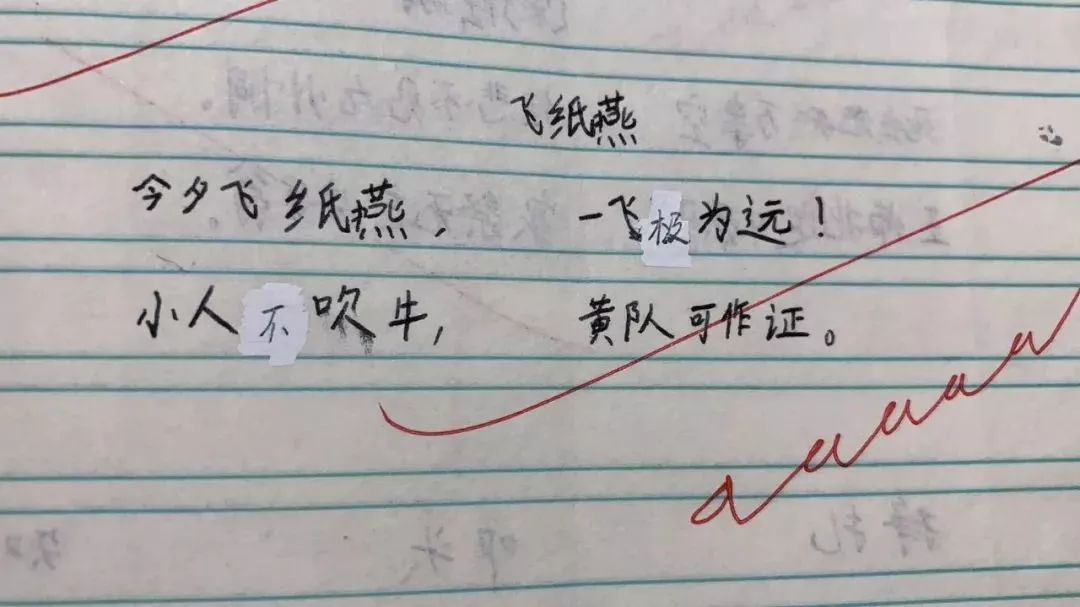 飞纸燕
今夕飞纸燕，一飞极为远！
小人不吹牛，黄队可作证。